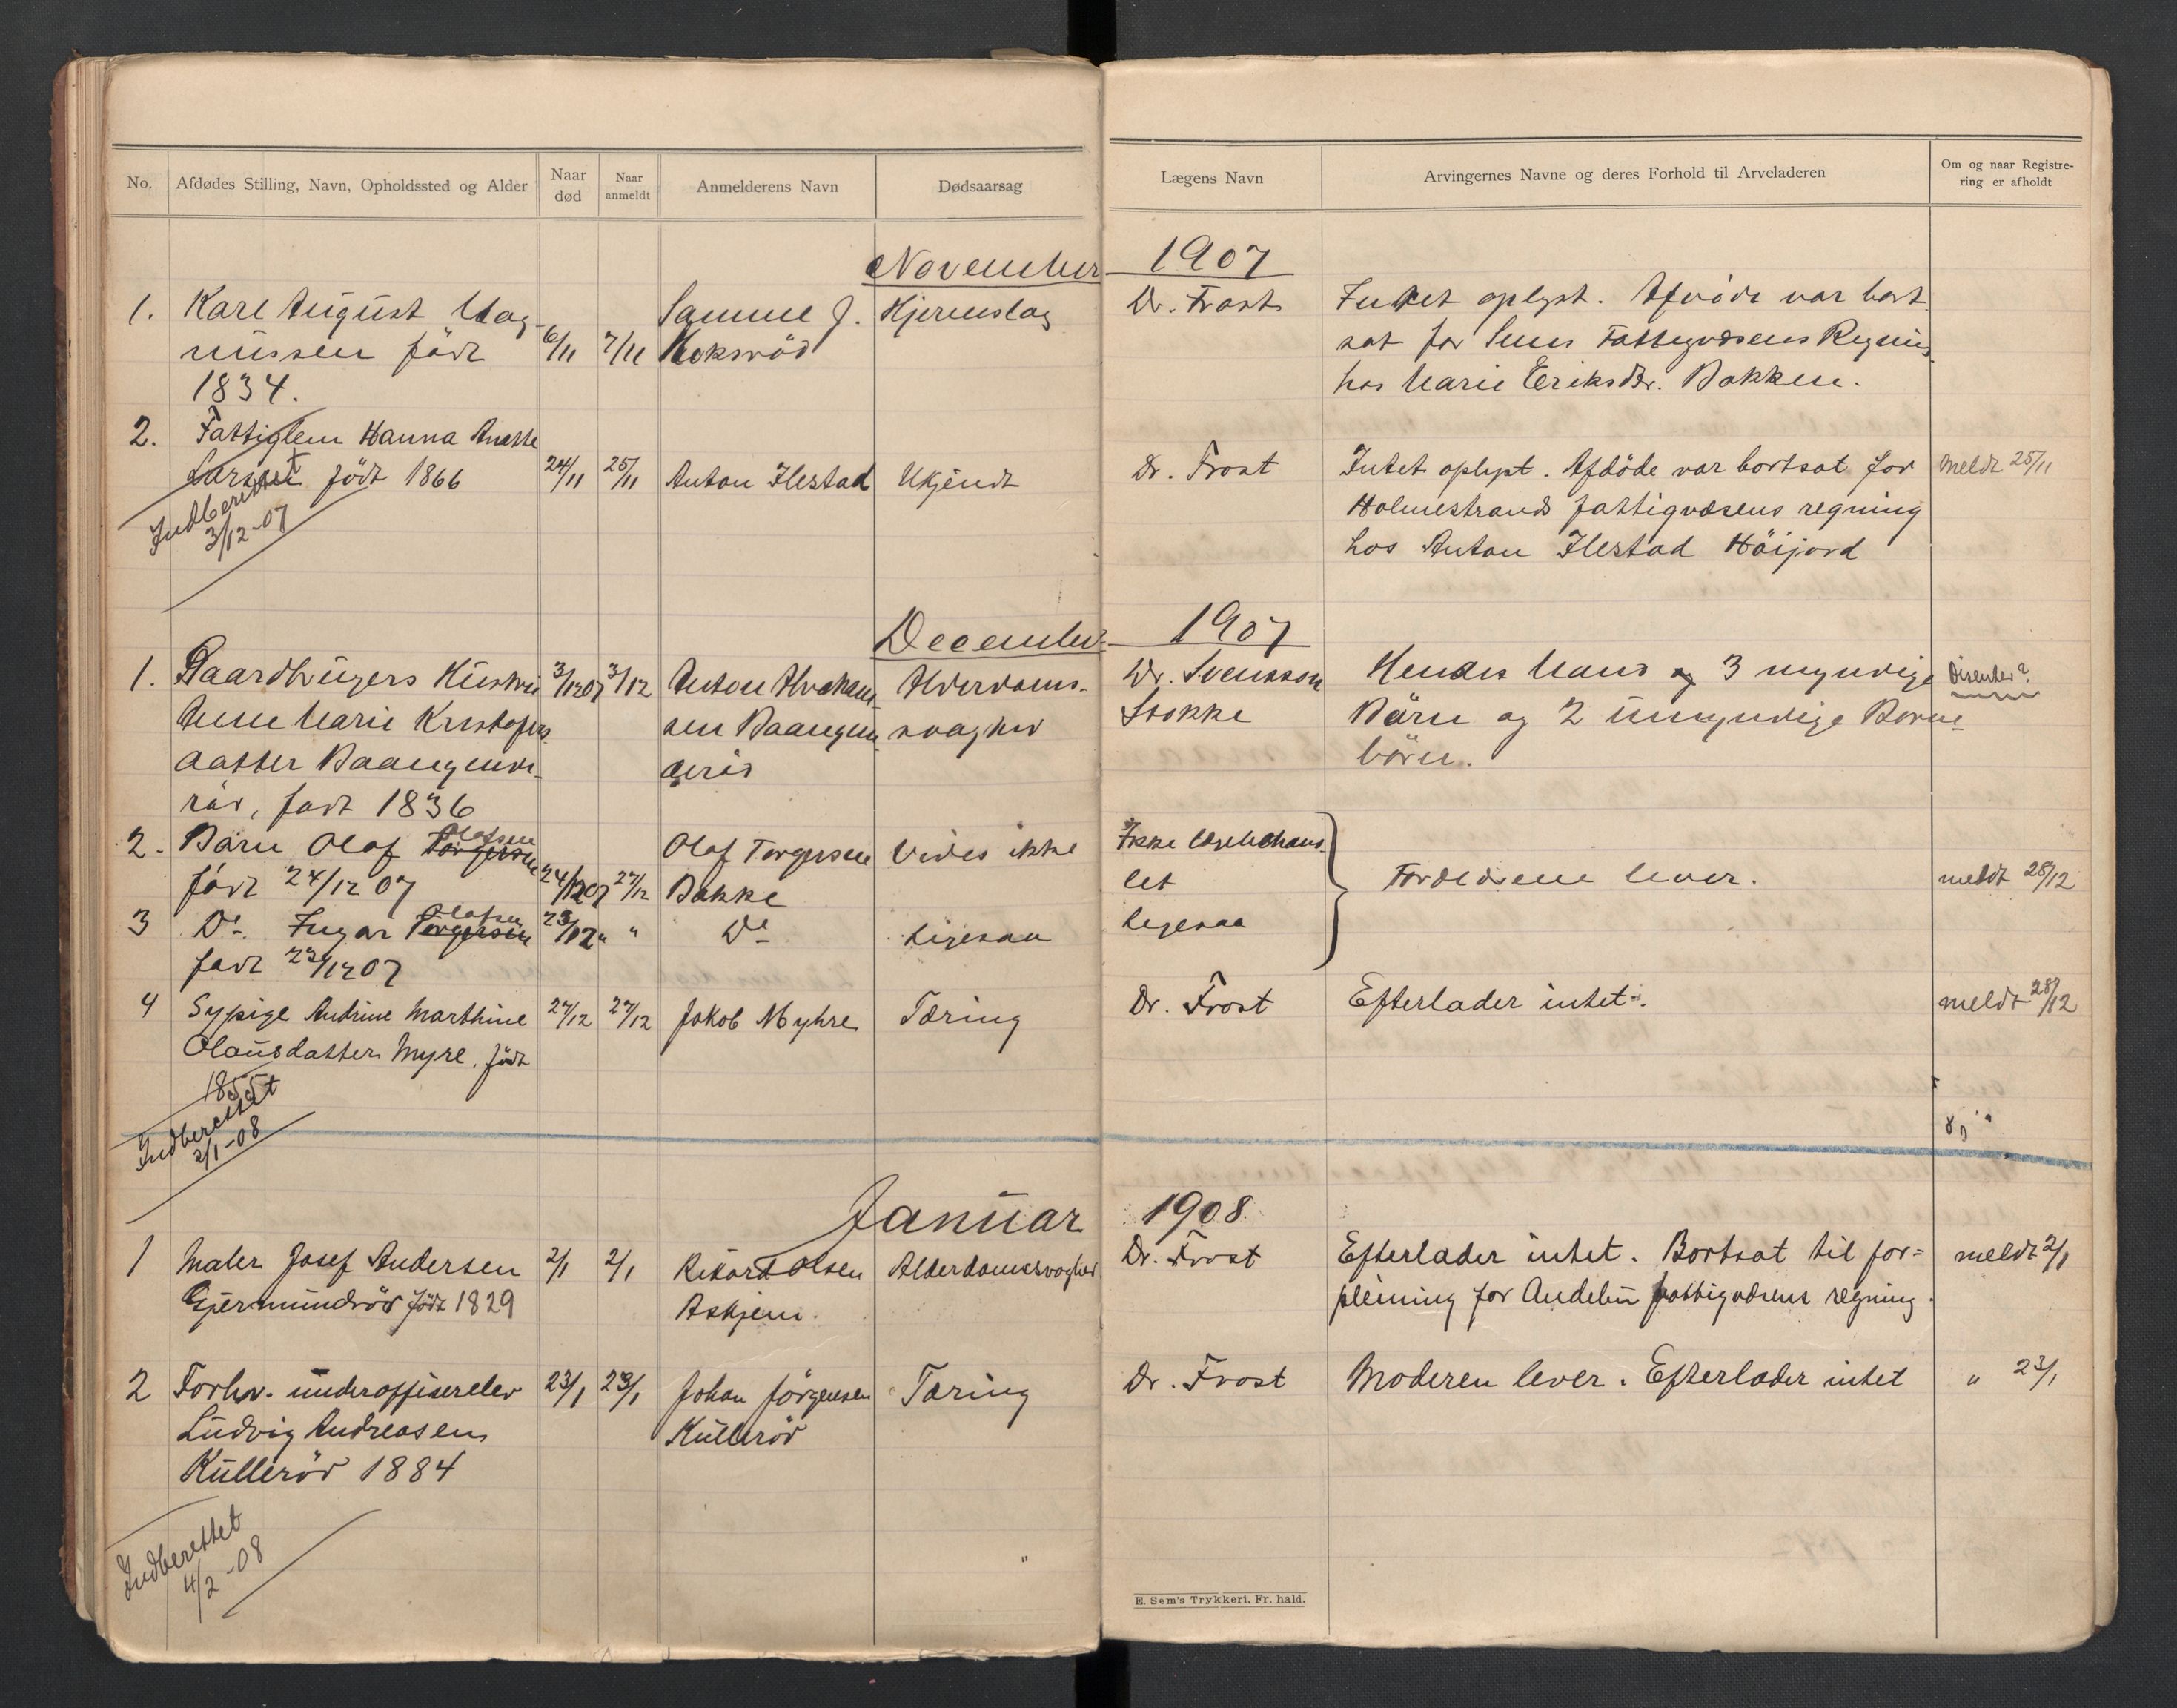 No.
Afdødes Stilling, Navn, Opholdssted og Alder
Naar død
Naar anmeldt
Anmelderens Navn
Dødsaarsag
Lægens Navn
Arvingernes Navne og deres Forhold til Arveladeren
Om og naar Registre-
ring er afholdt
November 1907
1. Karl August Mag-
nussen född
1834.
6/11 7/11
Samme J.
Hjerneslag
Dr. Frost
Intet oplyst. Afdöde var bort
sat for Sems Fattigvæsens Regning
hos Marie Eriksdr. Bakken.
2. Fattiglem Hanna Anette
Larsen född 1866
24/11 25/11
Anton Ilestad
Ukjendt
Dr. Frost
Intet oplyst. Afdöde var bortsat for
Holmestrands fattigvæsens regning
hos Anton Ilestad Höijord
meldt 25/11
Indberettet
3/12-07
December 1907
1. Gaardbrugers Hustru
Anne Marie Kristofers
datter Baangende-
röd, född 1836
3/12 07 3/12
Anton Abraham-
sen Baangen-
deröd
Alderdoms-
svaghed
Dr. Svensson
Stokke
Hendes Mand og 3 myndige
Börn og 2 umyndige Borne-
börn.
Disenter?
2. Barn Olaf Torgersen Olafsen
född 24/12 07
24/12 07 27/12
Olaf Torgersen
Bakke
Vides ikke
Ikke lægebehand-
let
Forældrene lever.
meldt 28/12
3 Do Ingar Torgersen Olafsen
född 23/12 07
23/12 " "
Do
Ligesaa
Ligesaa
4 Sypige Andrine Marthine
Olausdatter Myre, född
1855
27/12 27/12
Jakob Myhre
Tæring
Dr. Frost
Efterlader intet.
meldt 28/12
Indberettet
2/1-08
Januar 1908
1 Maler Josef Andersen
Gjermundröd född 1829
2/1 2/1
Rikard Olsen
Askjem.
Alderdomssvaghed
Dr. Frost
Efterlader intet. Bortsat til for=
pleining for Andebu fattigvæsens regning.
meldt 2/1
2 Forhv. underoffiserelev
Ludvig Andreasen
Kulleröd 1884
23/1 23/1
Johan Jörgensen
Kulleröd
Tæring
Dr. Frost
Moderen lever. Efterlader intet
" 23/1
Indberettet
4/2-08
E. Sem's Trykkeri. Fr. hald.